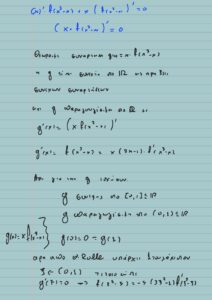 (x)' f(x²-x) + x (f(x²-x))' = 0
(x · f(x²-x))' = 0
Θεωρούμε συνάρτηση g(x) = x f(x²-x)
η g είναι συνεχής στο ℝ ως πράξεις
συνεχών συναρτήσεων
και g παραγωγίσιμη στο ℝ με
g'(x) = (x f(x²-x))'
g'(x) = f(x²-x) + x (2x-1) · f'(x²-x)
Άρα για την g ισχύουν
g συνεχής στο [0,1] ⊆ ℝ
g παραγωγίσιμη στο (0,1) ⊆ ℝ
g(x) = x f(x²-x)
g(0) = 0 = g(1)
άρα από Θ. Rolle υπάρχει τουλάχιστον
ξ ∈ (0,1) τέτοιο ώστε
g'(ξ) = 0